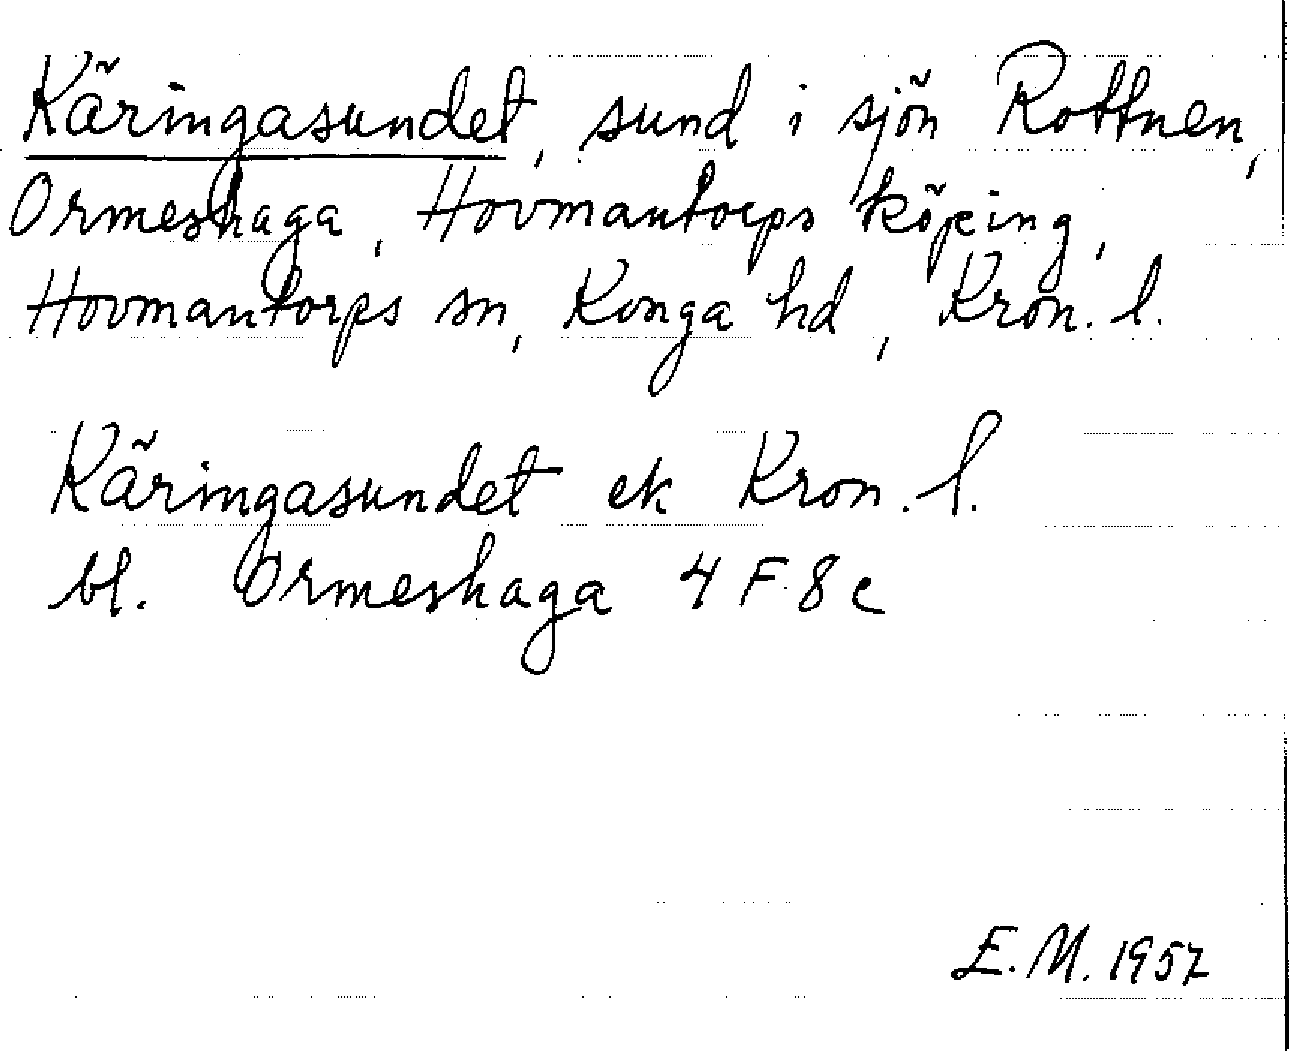 Käringasundet, sund i sjön Rottnen,
Ormeshaga, Hovmantorps köping,
Hovmantorps sn, Konga hd, Kron. l.
Käringasundet ek Kron. l.
bl. Ormeshaga 4 F 8 c
E. M. 1957